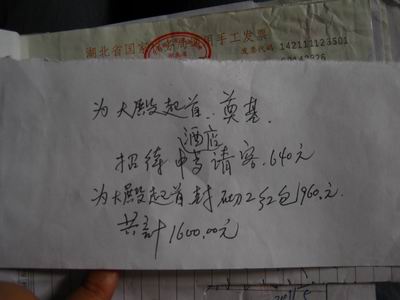 湖北省国家 用手工发票
发票代码 142111123501
为大殿起首.奠基.
酒店
招待中午请客.640元
为大殿起首封砌工红包960.元
共計1600.00元